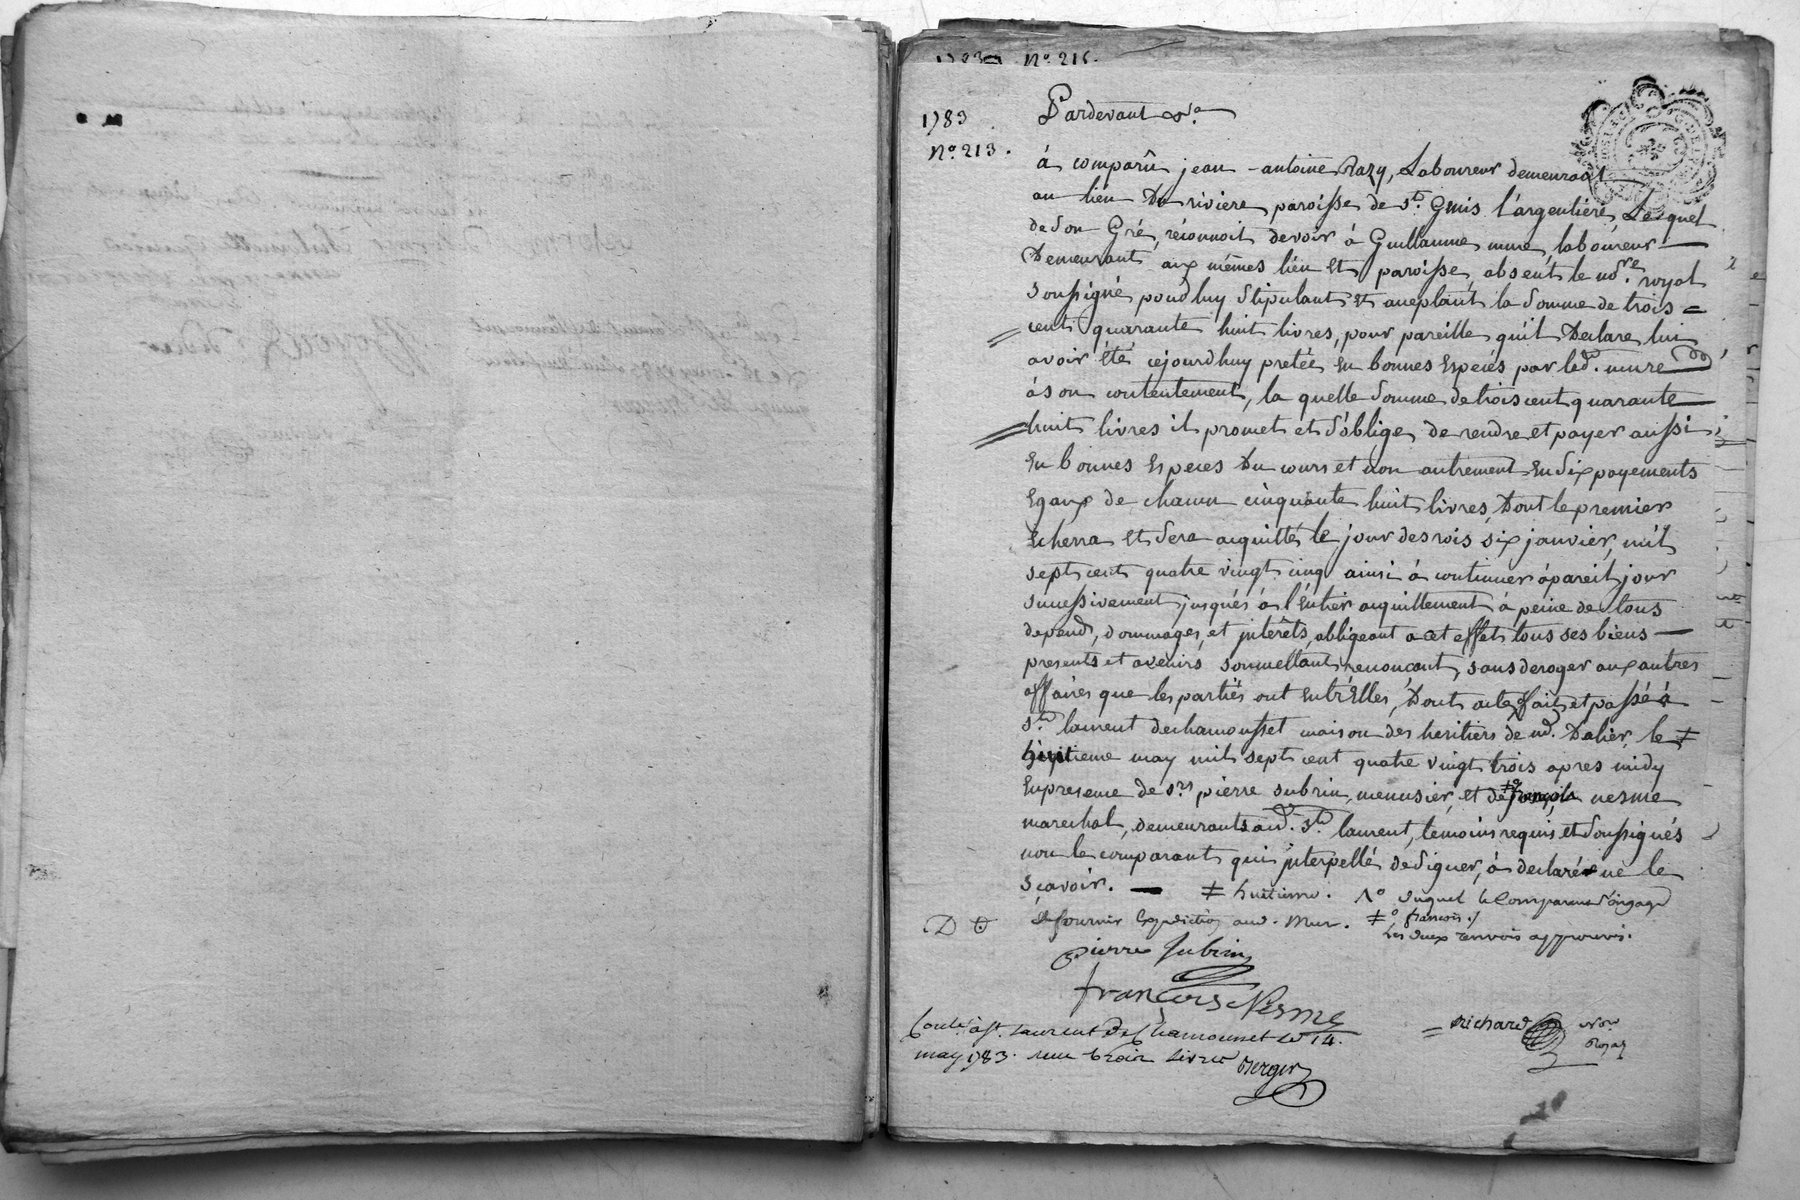 1783 N.° 216.
1783
N.° 213.
Pardevant &.a
à comparû jean-antoine Razy, Laboureur demeurant
au lieu Du riviere paroisse de S.t Genis l'argentiére, Lequel
de son Gré, réconnoit devoir à Guillaume mure, laboureur
Demeurant aux mêmes lieu Et paroisse, absent le no.re royal
soussigné pour luy stipulant Et acceptant la somme de trois
cent quarante huit livres, pour pareille qu'il Declare lui
avoir été cejourdhuy pretée En bonnes Especés par led. mure
à son contentement, la quelle somme de trois cent quarante
huit livres il promet et s'oblige de rendre et payer aussi
En bonnes Especes Du cours et non autrement En six payements
Egaux de chacun cinquante huit livres, Dont le premier
Echerra Et sera acquitté le jour des rois six janvier, mil
sept cent quatre vingt cinq ainsi à continuer à pareil jour
successivement jusqués à l'Entier acquittement à peine de tous
depends, dommages, et interêts, obligeant a cet effet tous ses biens
presents et avenirs, soumettant, renonçant, sans deroger aux autres
affaires que les partiés ont Entr'Elles, Dont acte fait et passé à
S.t laurent dechamousset maison des heritiers de m.d Dalier, le ≠
may mil sept cent quatre vingt trois apres midy
En presence de S.rs pierre subrin, menusier, et de françois nesme
marechal, demeurants aud. S.t laurent, temoins requis et soussignés
non le comparant qui interpellé de signer, à declaré ne le
sçavoir. ≠ huitieme. 1° Duquel le Comparant s'engage
de fournir Expedition aud. Mure. ≠° françois ./
Les deux renvois approuvés.
pierre Subrin
françois Nesme
richard No.re Royal
Conté à S.t Laurent De Chamousset Le 14.
may 1783. reçu trois livres
Berger